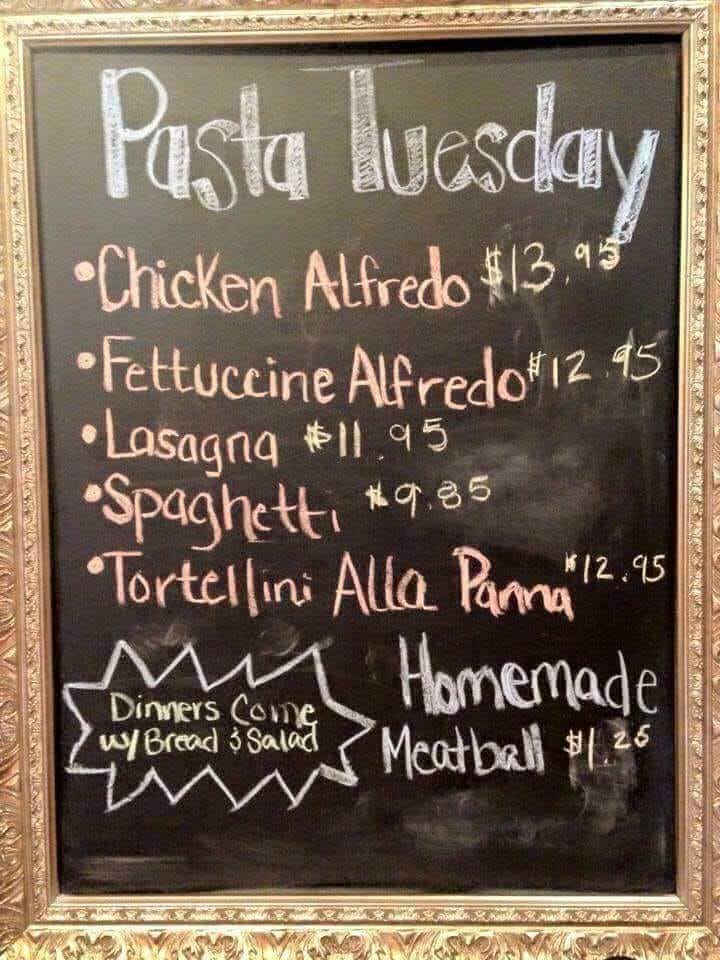 Pasta Tuesday
•Chicken Alfredo $13.95
•Fettuccine Alfredo $12.95
•Lasagna $11.95
•Spaghetti $9.85
•Tortellini Alla Panna $12.95
Dinners Come
w/ Bread & Salad
Homemade
Meatball $1.25